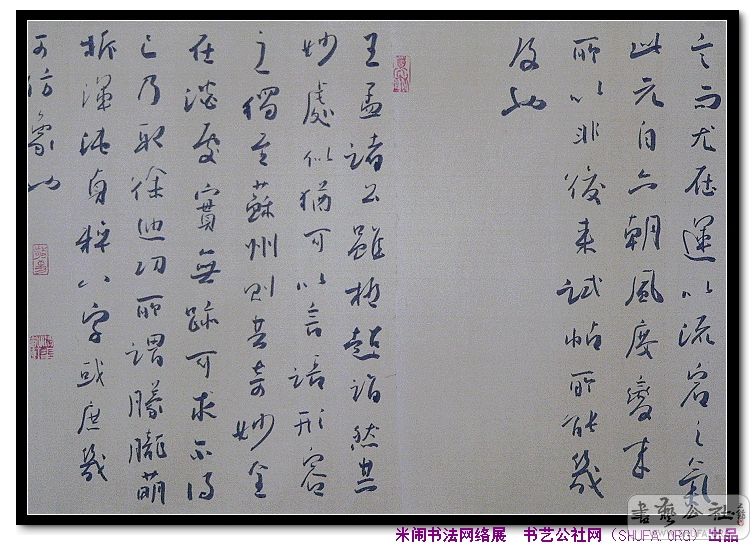 言而尤在運以流宕之氣
此元自六朝風度變來
所以非後來試帖所能幾
及也
王孟諸公雖極超詣然其
妙處似猶可以言語形容
之獨至蘇州則其奇妙全
在淡處實無跡可求不得
已乃取徐迪功所謂朦朧萌
拆渾沌貞粹八字或庶幾
可仿象也
書藝公社
米闹书法网络展 书艺公社网（SHUFA.ORG）出品